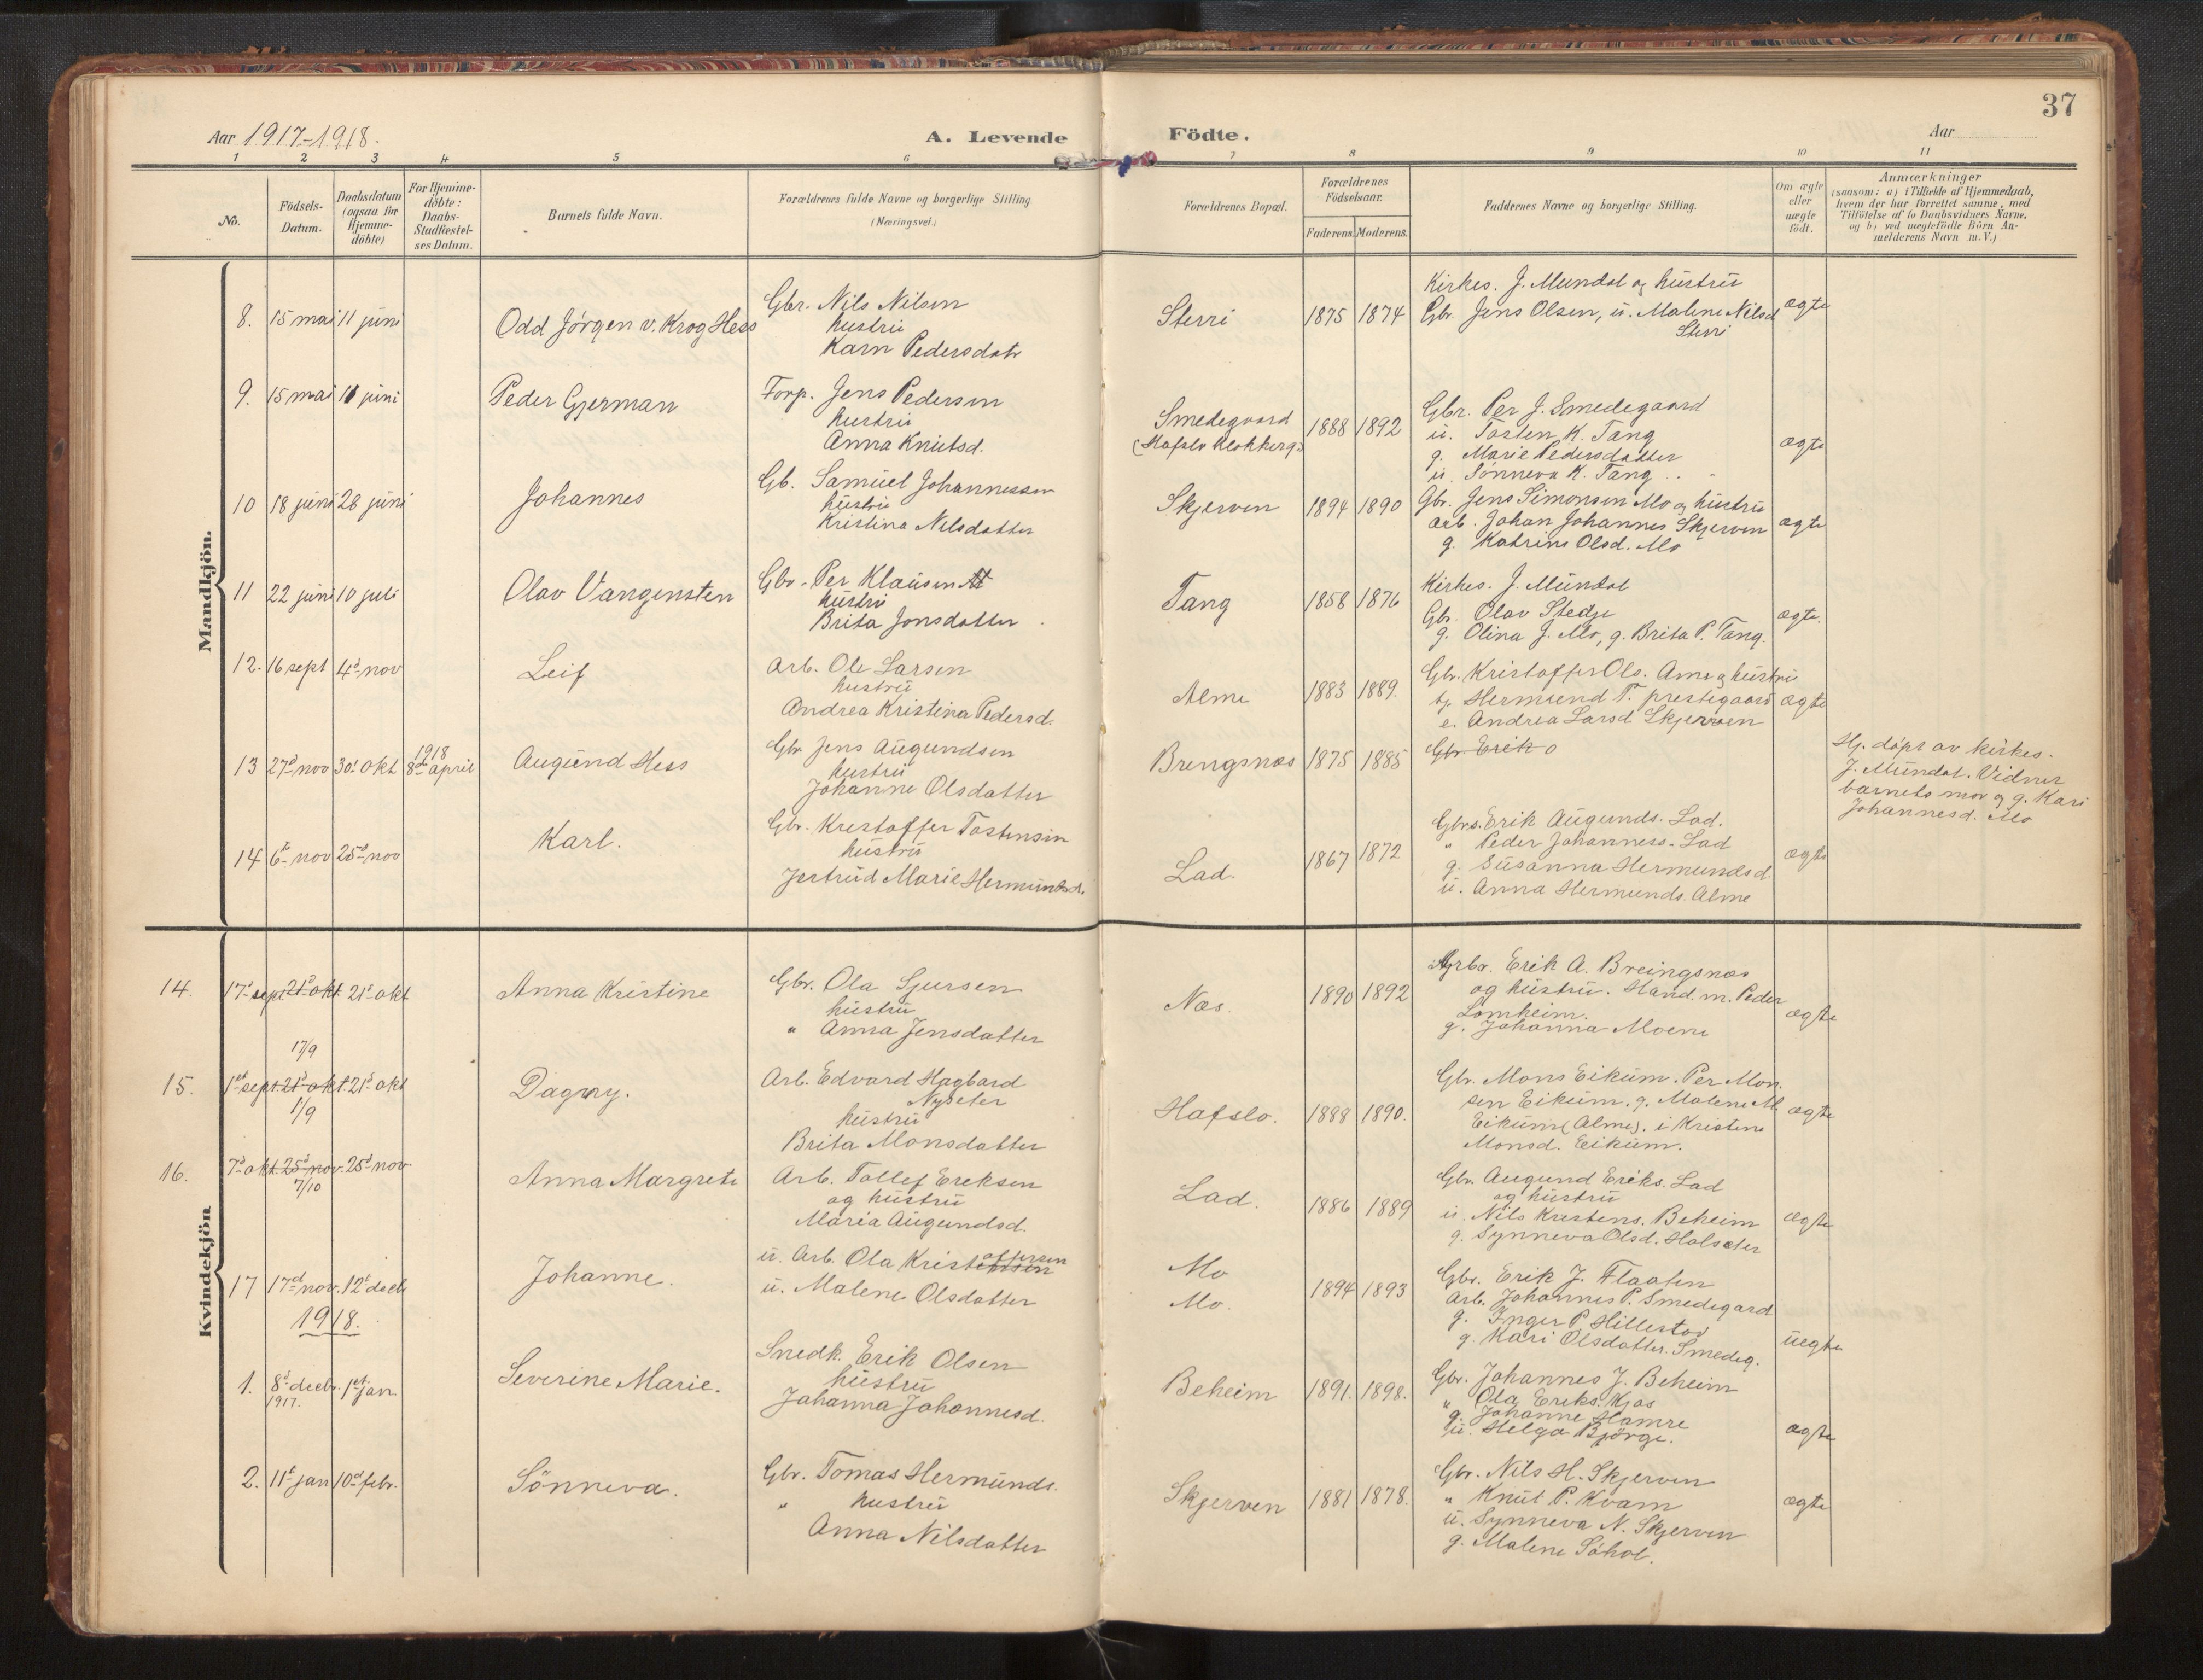 37
Aar 1917-1918. A. Levende Födte. Aar
1 2 3 4 5 6 7 8 9 10 11
No.
Födsels-
Datum.
Daabsdatum
(ogsaa for
Hjemme-
döbte)
For Hjemme-
döbte:
Daabs-
Stadfæstel-
ses Datum.
Barnets fulde Navn.
Forældrenes fulde Navne og borgerlige Stilling.
(Næringsvei.)
Forældrenes Bopæl.
Forældrenes
Födselsaar.
Faderens. Moderens.
Faddernes Navne og borgerlige Stilling.
Om ægte
eller
uægte
födt.
Anmærkninger
(saasom: a) i Tilfælde af Hjemmedaab,
hvem der har forrettet samme, med
Tilföielse af to Daabsvidners Navne.
og b) ved uegtefödte Börn An-
melderens Navn m. V.)
Mandkjön.
8. 15 mai 11 juni
Odd Jörgen v. Krog Hess
Gbr. Nils Nilsen
hustru
Karn Pedersdatr
Sterri
1875 1874
Kirkes. J. Mundal og hustru
Gbr. Jens Olsen, u. Malene Nilsd
Sterri
ægte
9. 15 mai 11 juni
Peder Gjerman
Forp. Jens Pedersen
hustru
Anna Knutsd.
Smedegaard
(Hafslo klokkerg.)
1888 1892
Gbr. Per J. Smedegaard
u. Tosten K. Tang
g. Marie Pedersdatter
u. Sønneva K. Tang
ægte
10 18 juni 28 juni
Johannes
Gb. Samuel Johannessen
hustru
Kristina Nilsdatter
Skjerven
1894 1890
Gbr. Jens Simonsen Mo og hustru
arb. Johan Johannes Skjerven
g. Katrine Olsd. Mo
ægte
11 22 juni 10 juli
Olav Vangensten
Gbr. Per Klausen
hustru
Brita Jonsdatter
Tang
1858 1876
Kirkes. J. Mundal
Gbr. Olav Stedje
g. Olina J. Mo, g. Brita P. Tang.
ægte.
12. 16 sept 4d nov
Leif
arb. Ole Larsen
hustru
Andrea Kristina Pedersd.
Alme
1883 1889.
Gbr. Kristoffer Ols. Alme og hustru
tj. Hermund T. prestegaard
e. Andrea Larsd Skjerven
ægte
13 27d nov 30d okt 1918
8de april
Augund Hess
Gbr Jens Augundsen
hustru
Johanne Olsdatter
Brengsnæs
1875 1885
Gbr. Erik
Hj. døpt av kirkes.
J. Mundal. Vidner
barnets mor og g. Kari
Johannesd. Mo
14 6t nov 25d nov
Karl.
Gbr. Kristoffer Tostensen
hustru
Jertrud Marie Hermundsd.
Lad.
1867 1872
Gbrs. Erik Augunds. Lad.
" Peder Johanness. Lad
g. Susanna Hermundsd
u. Anna Hermunds. Alme
ægte
Kvindekjön
14. 17d sept 21d okt 21d okt
17/9
Anna Kristine
Gbr. Ola Sjursen
hustru
" Anna Jensdatter
Næs.
1890 1892
Gbr. Erik A. Breingsnæs
og hustru. Hand. m. Peder
Lomheim.
g. Johanna Moene
ægte
15. 1st sept. 21d okt. 21d okt
1/9
Dagny.
Arb. Edvard Hagbard
Nyseter
hustru
Brita Monsdatter
Hafslo.
1888 1890.
Gbr. Mons Eikum. Per Mon.
sen Eikum. g. Malene M.
Eikum (Alme). i Kristene
Monsd. Eikum.
ægte
16. 7d okt. 25d nov. 25d nov.
7/10
Anna Margrete
Arb. Tollef Ereksen
og hustru
Maria Augundsd.
Lad.
1886 1889
Gbr. Augund Ereks. Lad
og hustru
u. Nils Krestens. Beheim
g. Synneva Olsd. Holseter
ægte
17 17d nov. 12t decb
Johanne.
u. Arb. Ola Kristoffersen
u. Malene Olsdatter
Mo
Mo.
1894 1893
Gbr. Erik J. Flaaten
Arb. Johannes P. Smedegard
g. Inger P Hillestad
g. Kari Olsdatter. Smedeg.
uegte
1918.
1. 8d decbr. 1st jan.
1917.
Severine Marie.
Snedk. Erik Olsen
hustru
Johanna Johannesd.
Beheim
1891. 1898.
Gbr. Johannes J. Beheim
" Ola Ereks. Kjos
g. Johanne Hamre
u. Helga Bjørge.
ægte
2. 11t jan 10d febr.
Sönneva.
Gbr. Tomas Hermunds.
" hustru
Anna Nilsdatter
Skjerven
1881 1878.
Gbr. Nils H. Skjerven
" Knut P. Kvam
u. Synneva N. Skjerven
g. Malene Søhol.
ægte